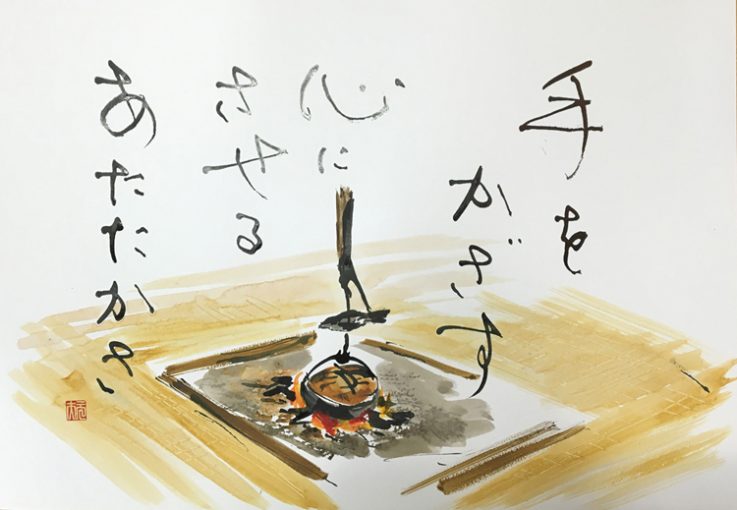 手を
かざす
心に
させる
あたたかさ